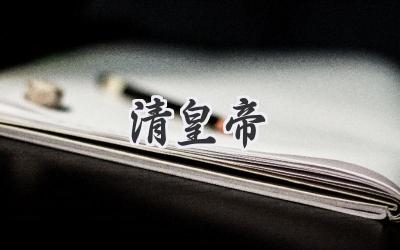 清皇帝